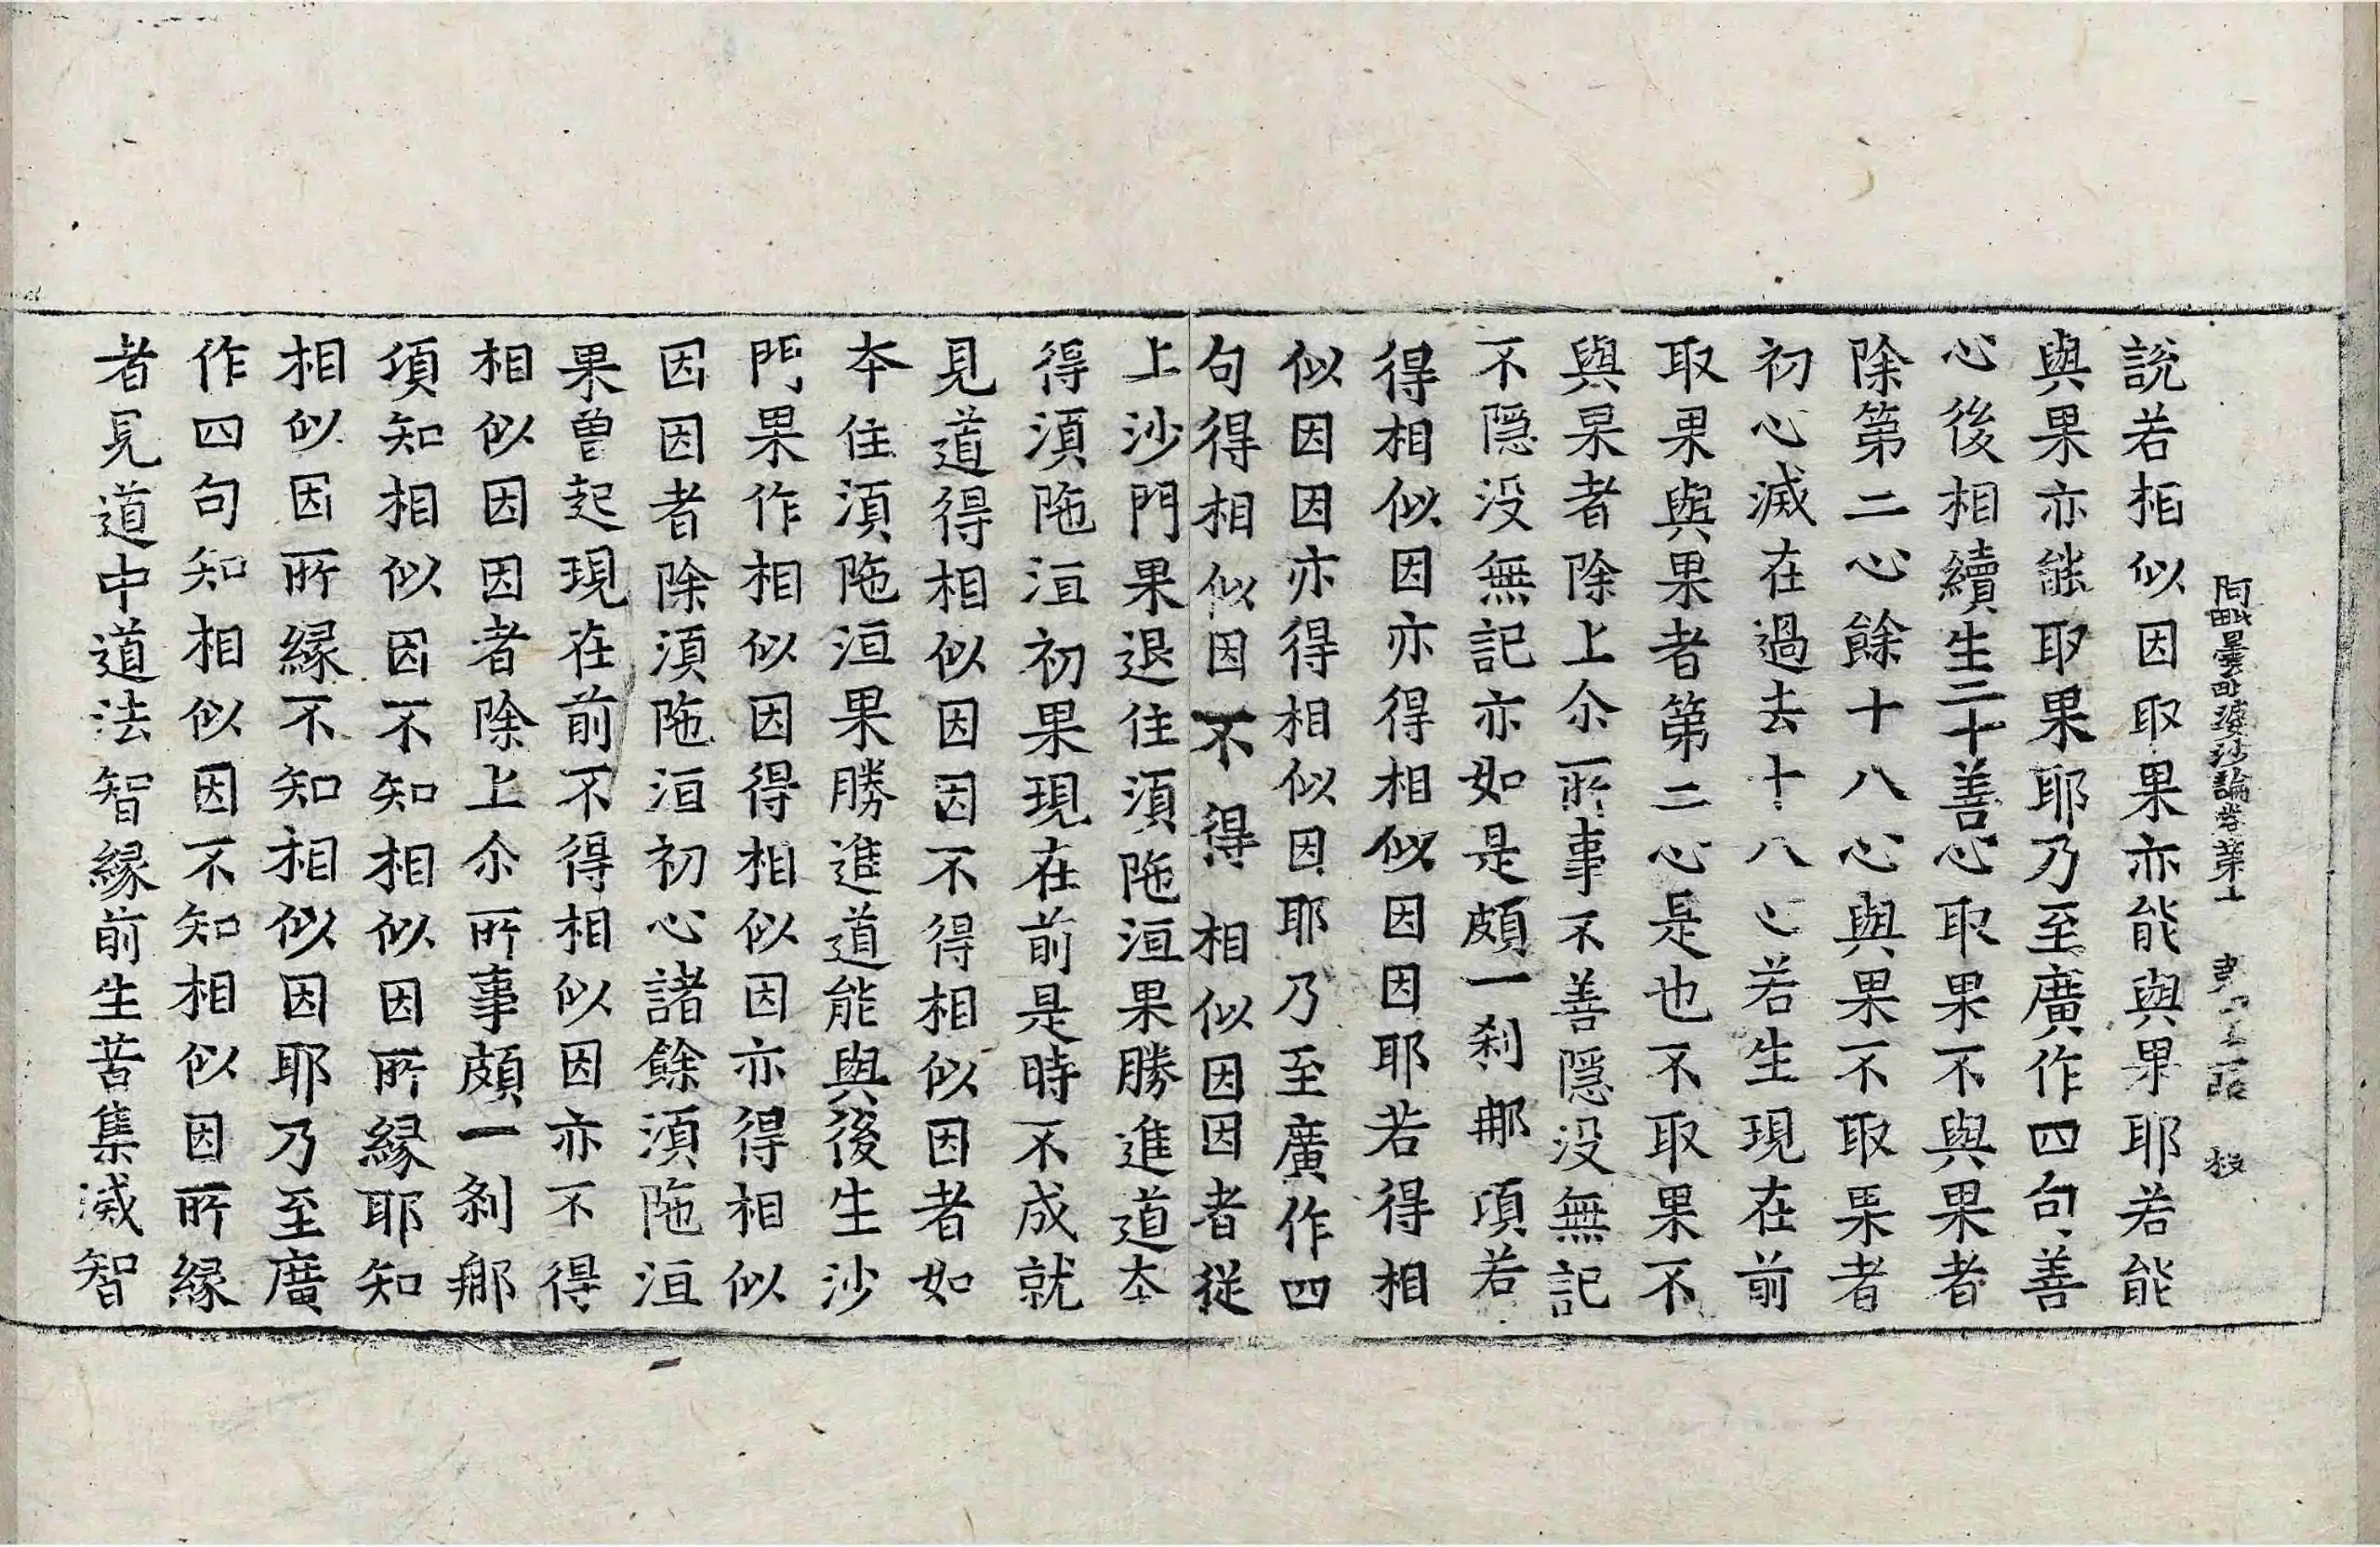 阿毗曇毗婆沙論卷第十
說若相似因取果亦能與果耶若能
與果亦能取果耶乃至廣作四句善
心後相續生二十善心取果不與果者
除第二心餘十八心與果不取果者
初心滅在過去十八心若生現在前
取果與果者第二心是也不取果不
與果者除上尒所事不善隱没無記
不隱没無記亦如是頗一刹那項若
得相似因亦得相似因因耶若得相
似因因亦得相似因耶乃至廣作四
句得相似因不得相似因因者從
上沙門果退住湏陁洹果勝進道本
得湏陁洹初果現在前是時不成就
見道得相似因因不得相似因者如
本住湏陁洹果勝進道能與後生沙
門果作相似因得相似因亦得相似
因因者除湏陁洹初心諸餘湏陁洹
果曽起現在前不得相似因亦不得
相似因因者除上尒所事頗一刹那
項知相似因不知相似因所縁耶知
相似因所縁不知相似因耶乃至廣
作四句知相似因不知相似因所縁
者見道中道法智縁前生苦集滅智